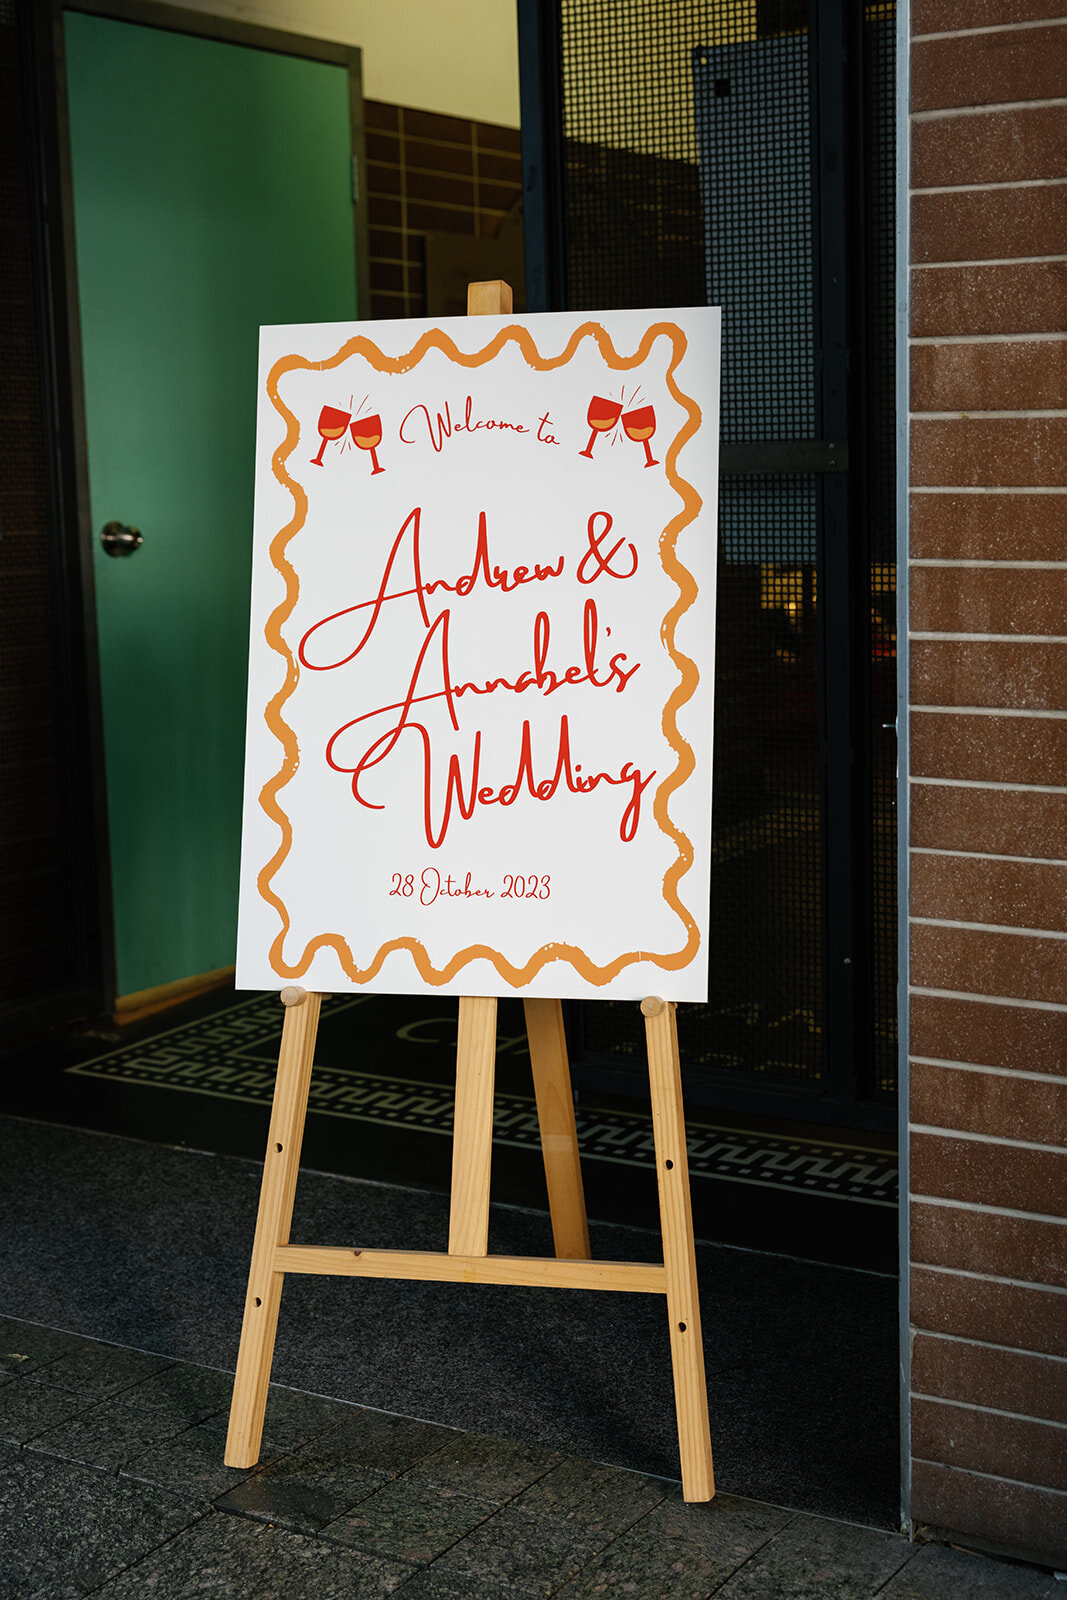 Welcome to
Andrew &
Annabel's
Wedding
28 October 2023